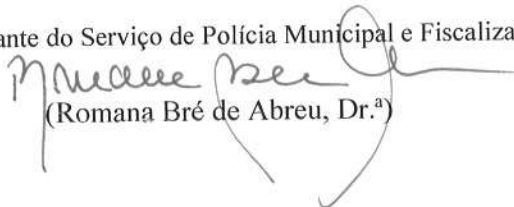 ante do Serviço de Polícia Municipal e Fiscaliza
(Romana Bré de Abreu, Dr.ª)